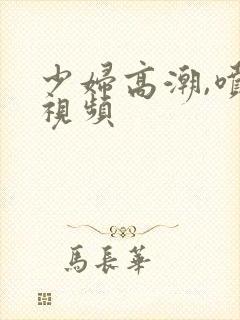 少婦高潮,噴
視頻
馬長華